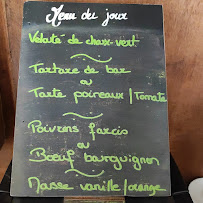 Menu du jour
Velouté de choux-vert
Tartare de bar
ou
Tarte poireaux / Tomate
Poivrons farcis
ou
Boeuf bourguignon
Masse vanille/orange